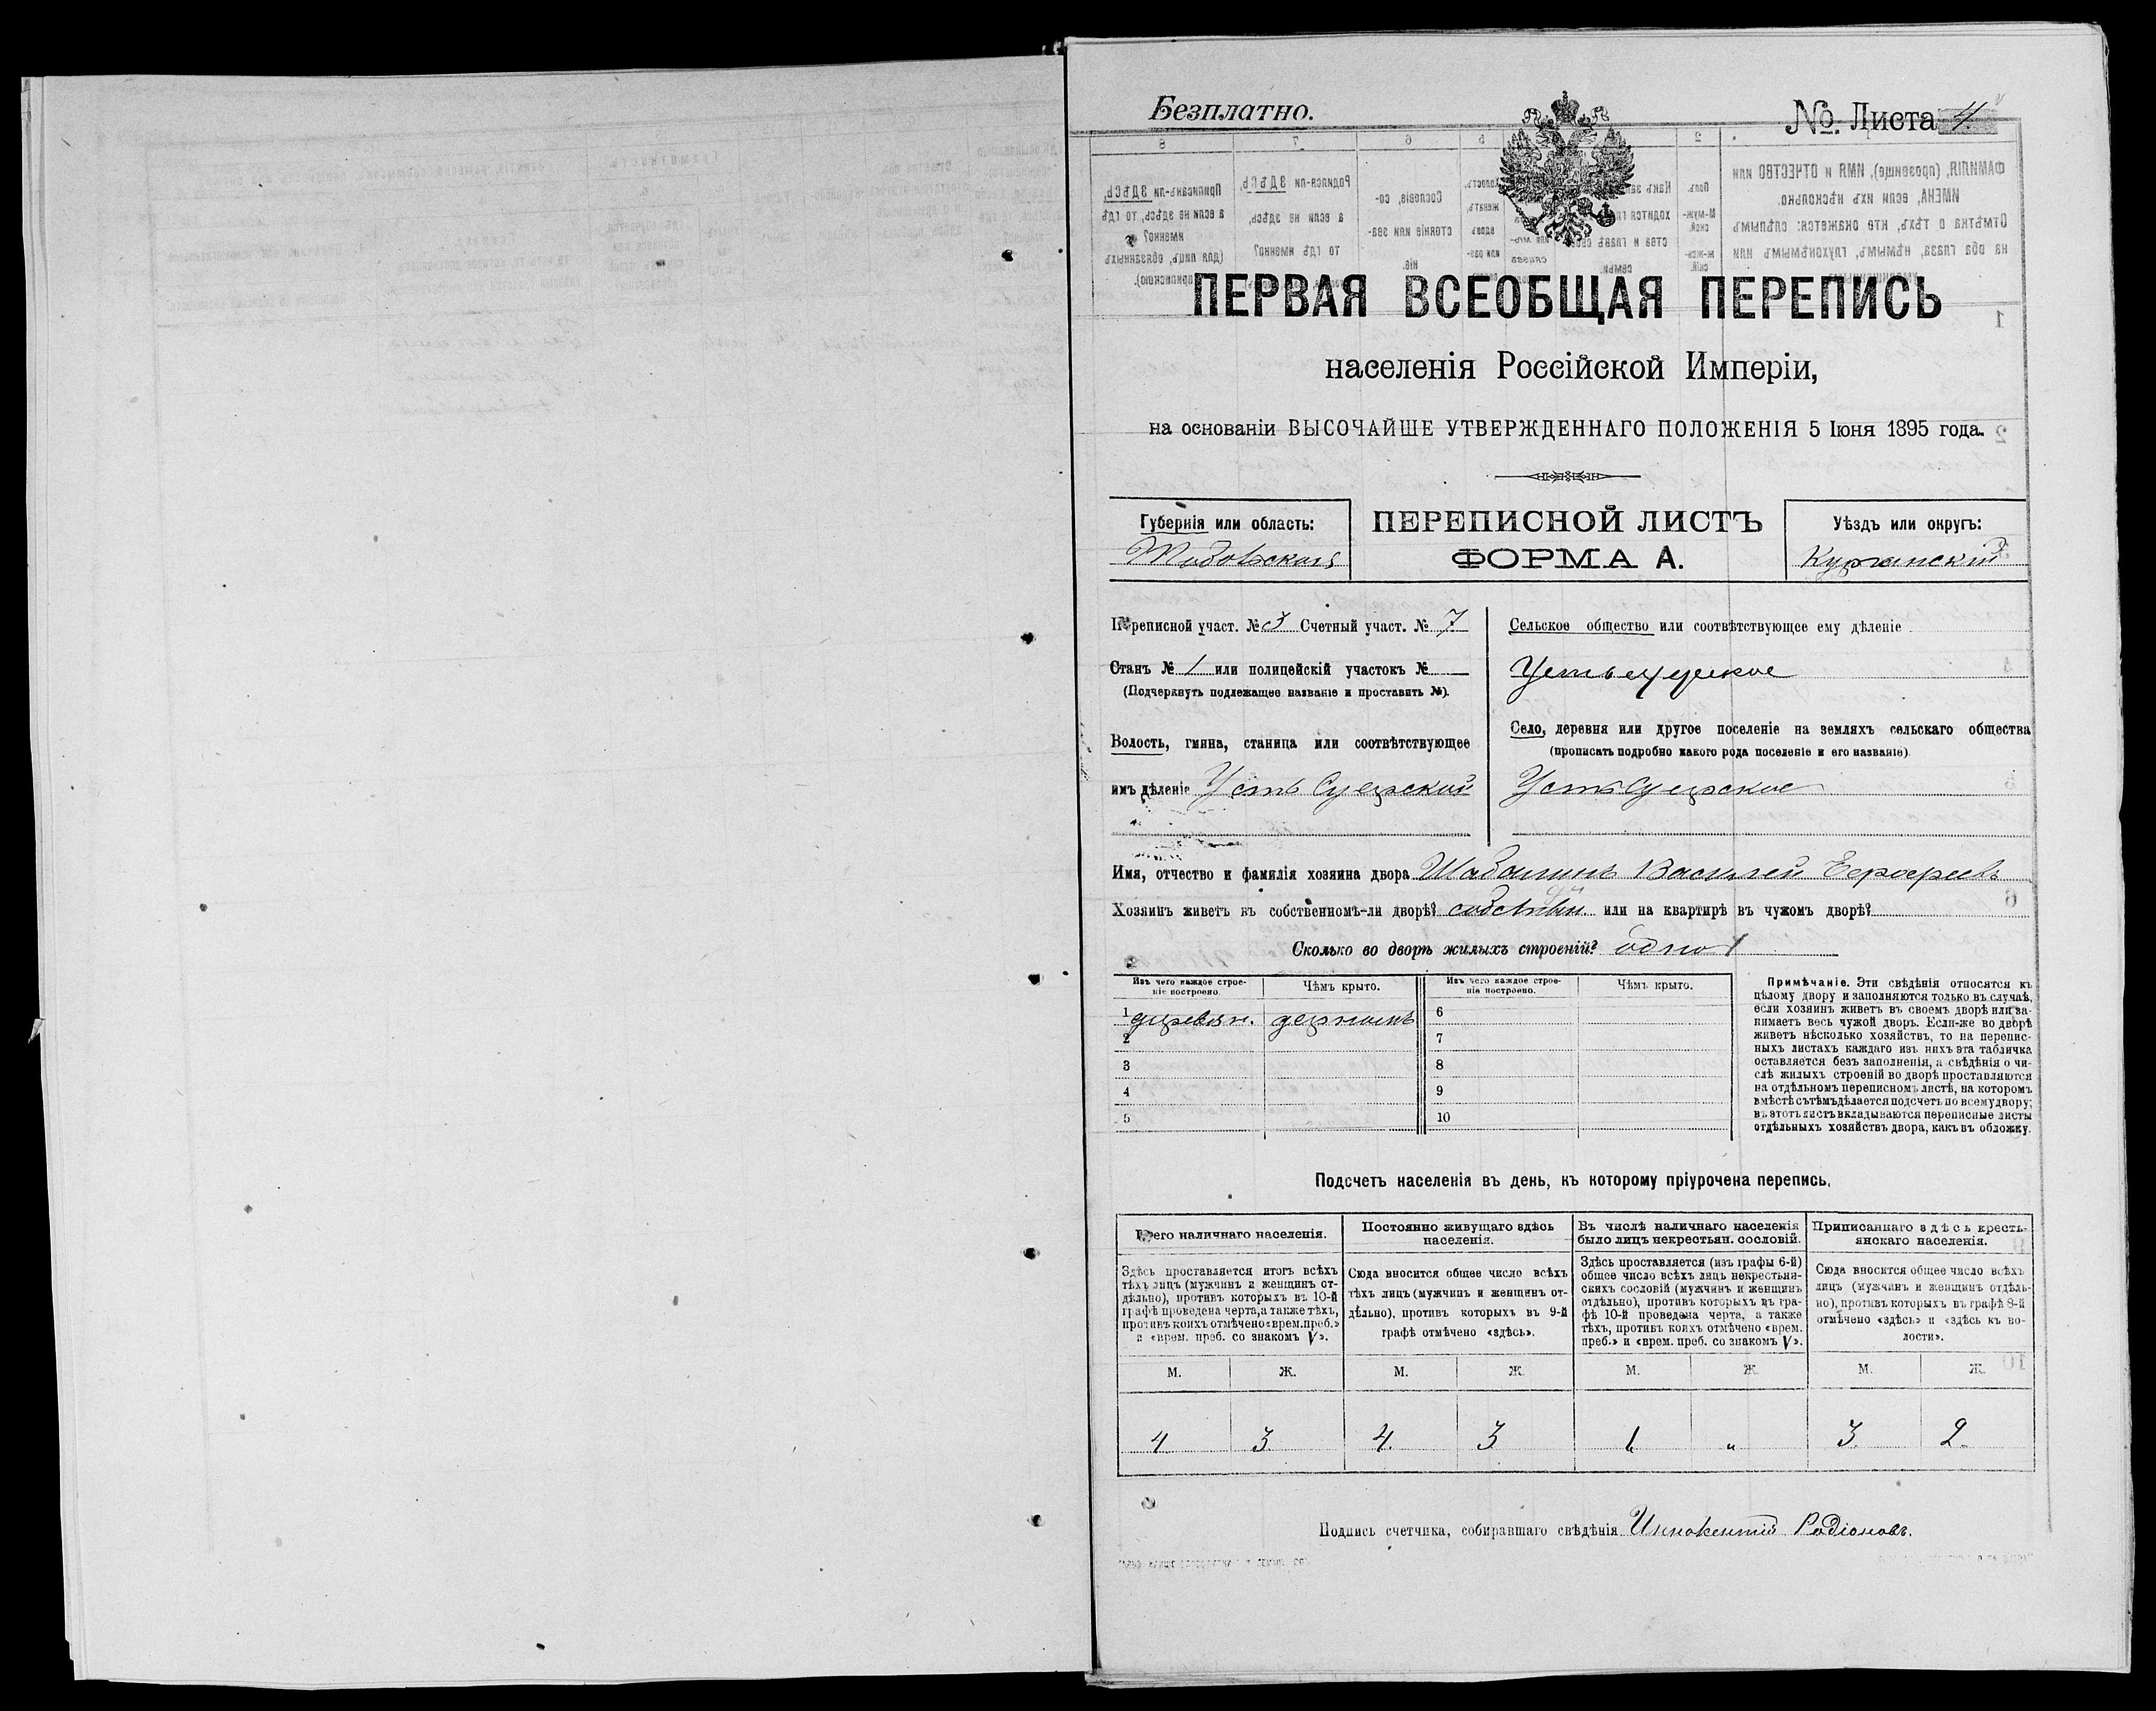 Безплатно.
№. Листа 4.
ПЕРВАЯ ВСЕОБЩАЯ ПЕРЕПИСЬ
населенія Россійской Имперіи,
на основаніи ВЫСОЧАЙШЕ УТВЕРЖДЕННАГО ПОЛОЖЕНІЯ 5 Іюня 1895 года.
Губернія или область:
Тобольская
ПЕРЕПИСНОЙ ЛИСТЪ
ФОРМА А.
Уѣздъ или округъ:
Курганскій
Переписной участ. № 3 Счетный участ. № 7
Станъ № 1 или полицейскій участокъ №
(Подчеркнуть подлежащее названіе и проставить №).
Волость, гмина, станица или соотвѣтствующее
имъ дѣленіе Усть Суерской
Сельское общество или соотвѣтствующее ему дѣленіе
Устьсуерское
Село, деревня или другое поселеніе на земляхъ сельскаго общества
(прописать подробно какого рода поселеніе и его названіе)
Усть Суерское
Имя, отчество и фамилія хозяина двора Шабалинъ Василей
Хозяинъ живетъ въ собственномъ-ли дворѣ? собствен. или на квартирѣ въ чужомъ дворѣ?
Сколько во дворѣ жилыхъ строеній? одно 1
Изъ чего каждое строе-
ніе построено.
Чѣмъ крыто.
Изъ чего каждое строе-
ніе построено.
Чѣмъ крыто.
1 деревян. дерномъ 6
2 7
3 8
4 9
5 10
Примѣчаніе. Эти свѣдѣнія относятся къ
цѣлому двору и заполняются только въ случаѣ,
если хозяинъ живетъ въ своемъ дворѣ или за-
нимаетъ весь чужой дворъ. Если-же во дворѣ
живетъ нѣсколько хозяйствъ, то на перепис-
ныхъ листахъ каждаго изъ нихъ эта табличка
оставляется безъ заполненія, а свѣдѣнія о чи-
слѣ жилыхъ строеній во дворѣ проставляются
на отдѣльномъ переписномъ листѣ, на которомъ
вмѣстѣ сътѣмъ дѣлается подсчетъ по всему двору;
въ этотъ листъ вкладываются переписные листы
отдѣльныхъ хозяйствъ двора, какъ въ обложку.
Подсчетъ населенія въ день, къ которому пріурочена перепись.
Всего наличнаго населенія.
Постоянно живущаго здѣсь
населенія.
Въ числѣ наличнаго населенія
было лицъ некрестьян. сословій.
Приписаннаго здѣсь кресть-
янскаго населенія.
Здѣсь проставляется итогъ всѣхъ
тѣхъ лицъ (мужчинъ и женщинъ от-
дѣльно), противъ которыхъ въ 10-й
графѣ проведена черта, а также тѣхъ,
противъ коихъ отмѣчено «врем. преб.»
и «врем. преб. со знакомъ V».
Сюда вносится общее число всѣхъ
тѣхъ лицъ (мужчинъ и женщинъ от-
дѣльно), противъ которыхъ въ 9-й
графѣ отмѣчено «здѣсь».
Здѣсь проставляется (изъ графы 6-й)
общее число всѣхъ лицъ некрестьян-
скихъ сословій (мужчинъ и женщинъ
отдѣльно), противъ которыхъ въ гра-
фѣ 10-й проведена черта, а также
тѣхъ, противъ коихъ отмѣчено «врем.
преб.» и «врем. преб. со знакомъ V».
Сюда вносится общее число всѣхъ
лицъ (мужчинъ и женщинъ отдѣль-
но), противъ которыхъ въ графѣ 8-й
отмѣчено «здѣсь» и «здѣсь къ во-
лости».
М. Ж. М. Ж. М. Ж. М. Ж.
4 3 4. 3 1. " 3. 2.
Подпись счетчика, собиравшаго свѣдѣнія Иннокентій Родіоновъ.